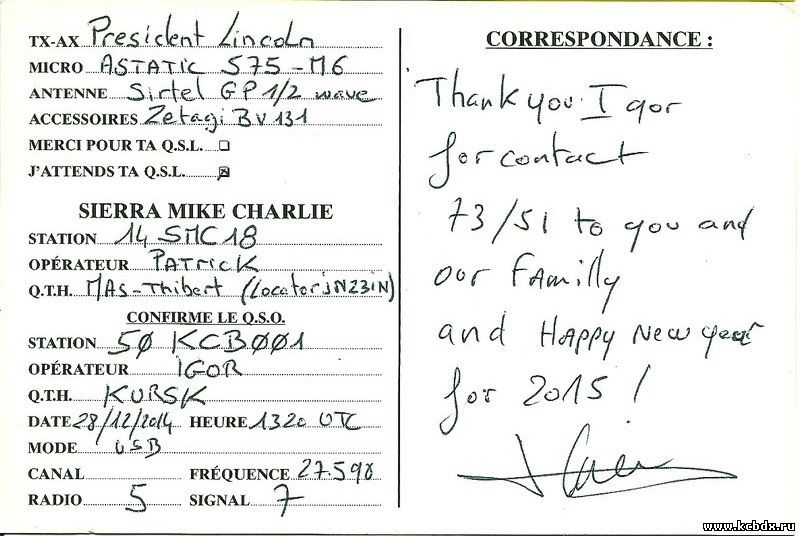 TX-AX President Lincoln
MICRO ASTATIC 575-M6
ANTENNE Sirtel GP 1/2 wave
ACCESSOIRES Zetagi BV 131
MERCI POUR TA Q.S.L. ☐
J'ATTENDS TA Q.S.L. ☒
SIERRA MIKE CHARLIE
STATION 14 SMC 18
OPÉRATEUR PATRICK
Q.T.H. MAS-Thibert (Locator JN23IN)
CONFIRME LE Q.S.O.
STATION 50 KCB001
OPÉRATEUR IGOR
Q.T.H. KURSK
DATE 28/12/2014 HEURE 1320 UTC
MODE USB
CANAL FRÉQUENCE 27.590
RADIO 5 SIGNAL 7
CORRESPONDANCE :
Thank you Igor
for contact
73/51 to you and
our FAMILLY
and HAPPY NEW year
for 2015 !
www.kcbdx.ru